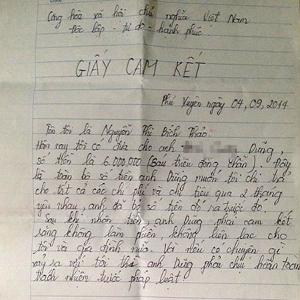 Cộng hòa xã hội chủ nghĩa Việt Nam
Độc lập - tự do - hạnh phúc
GIẤY CAM KẾT
Phú Xuyên ngày 04, 09, 2014
Tên tôi là Nguyễn Thị Bích Thảo
Hôm nay tôi có đưa cho anh Dũng,
số tiền là 6.000.000 (Sáu triệu đồng chẵn). Đây
là toàn bộ số tiền anh Dũng muốn tôi chi trả
cho tất cả các chi phí và chi tiêu qua 2 tháng
yêu nhau, anh đã bỏ số tiền đó ra trước đó.
Sau khi nhận tiền anh Dũng phải cam kết
sống không làm phiền, không liên lạc cho
tôi và gia đình nữa. Và nếu có chuyện gì
xảy ra với tôi thì anh Dũng phải chịu hoàn toàn
trách nhiệm trước pháp luật.